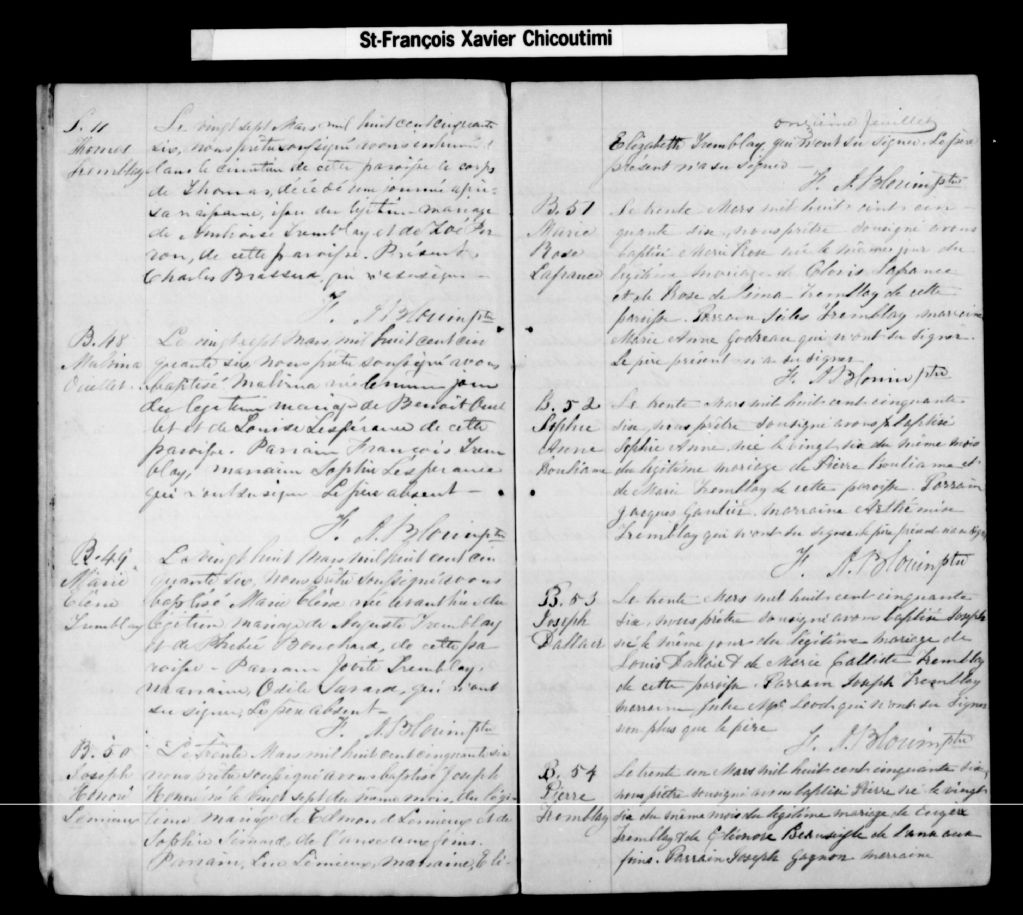 St-François Xavier Chicoutimi
S. 11
Thomas
Tremblay
Le vingt sept Mars mil huit cent cinquante
six, nous prêtre soussigné avons inhumé
dans le cimetière de cette paroisse le corps
de Thomas, décédé une journée après
sa naissance, issu du légitime mariage
de Ambroise Tremblay et de Zoé
de cette paroisse. Présent
Charles Brassard, qui n'a su signer
F. A. Blouin ptre
B. 48
Malvina
Ouellet
Le vingt sept Mars mil huit cent cin
quante six nous prêtre soussigné avons
baptisé Malvina née le même jour
du légitime mariage de Benoit Ouel
let et de Louise Lespérance de cette
paroisse. Parrain François Trem
blay, marraine Sophie Lesperance
qui n'ont su signer Le père absent —
F. A. Blouin ptre
B. 49
Marie
Elène
Tremblay
Le vingt huit Mars mil huit cent cin
quante six, nous prêtre soussigné avons
baptisé Marie Elène née le du
légitime mariage de Auguste Tremblay
et de Phebée Bouchard, de cette pa
roisse — Parrain Tremblay,
marraine, Odile Savard, qui n'ont
su signer, Le père absent —
F. A. Blouin ptre
B. 50
Joseph
Honoré
Lemieux
Le trente Mars mil huit cent cinquante six
nous prêtre soussigné avons baptisé Joseph
Honoré né le vingt sept du même mois, du légi-
time mariage de Edmond Lemieux et de
Sophie Simard, de l'anse aux foins.
Parrain, Luc Lemieux, marraine, Eli-
onzième feuillet
Elizabeth Tremblay, qui n'ont su signer. Le père
présent n'a su signer —
F. A. Blouin ptre
B. 51
Marie
Rose
Lafrance
Le trente Mars mil huit cent cin
quante six, nous prêtre soussigné avons
baptisé Marie Rose née le même jour du
légitime mariage de Clovis Lafrance
et de Rose de Lima Tremblay de cette
paroisse. Parrain Jules Tremblay marraine
Marie Anne Godreau qui n'ont su signer.
Le père présent n'a su signer
F. A. Blouin ptre
B. 52
Sophie
Anne
Bouliane
Le trente Mars mil huit cent cinquante
six, nous prêtre soussigné avons baptisé
Sophie Anne, née le vingt six du même mois
du légitime mariage de Pierre Bouliane et
de Marie Tremblay de cette paroisse. Parrain
Jacques Gautier marraine Arthémise
Tremblay qui n'ont su signer le père présent n'a su signer
F. A. Blouin ptre
B. 53
Joseph
Dallair
Le trente Mars mil huit cent cinquante
six, nous prêtre soussigné avons baptisé Joseph
né le même jour du légitime mariage de
Louis Dallair & de Marie Calliste Tremblay
de cette paroisse. Parrain Joseph Tremblay
marraine Leod qui n'ont su signer
non plus que le père
F. A. Blouin ptre
B. 54
Pierre
Tremblay
Le trente un Mars mil huit cent cinquante six,
nous prêtre soussigné avons baptisé Pierre né le vingt
six du même mois du légitime mariage de
Tremblay & de Eléonore de l'anse aux
foins. Parrain Joseph Gagnon marraine